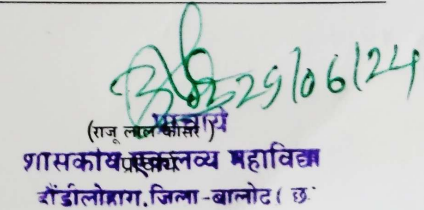 29/06/24
(राजू लाल कोसरे)
प्राचार्य
शासकीय एकलव्य महाविद्या
डौंडीलोहारा, जिला-बालोद ( छ